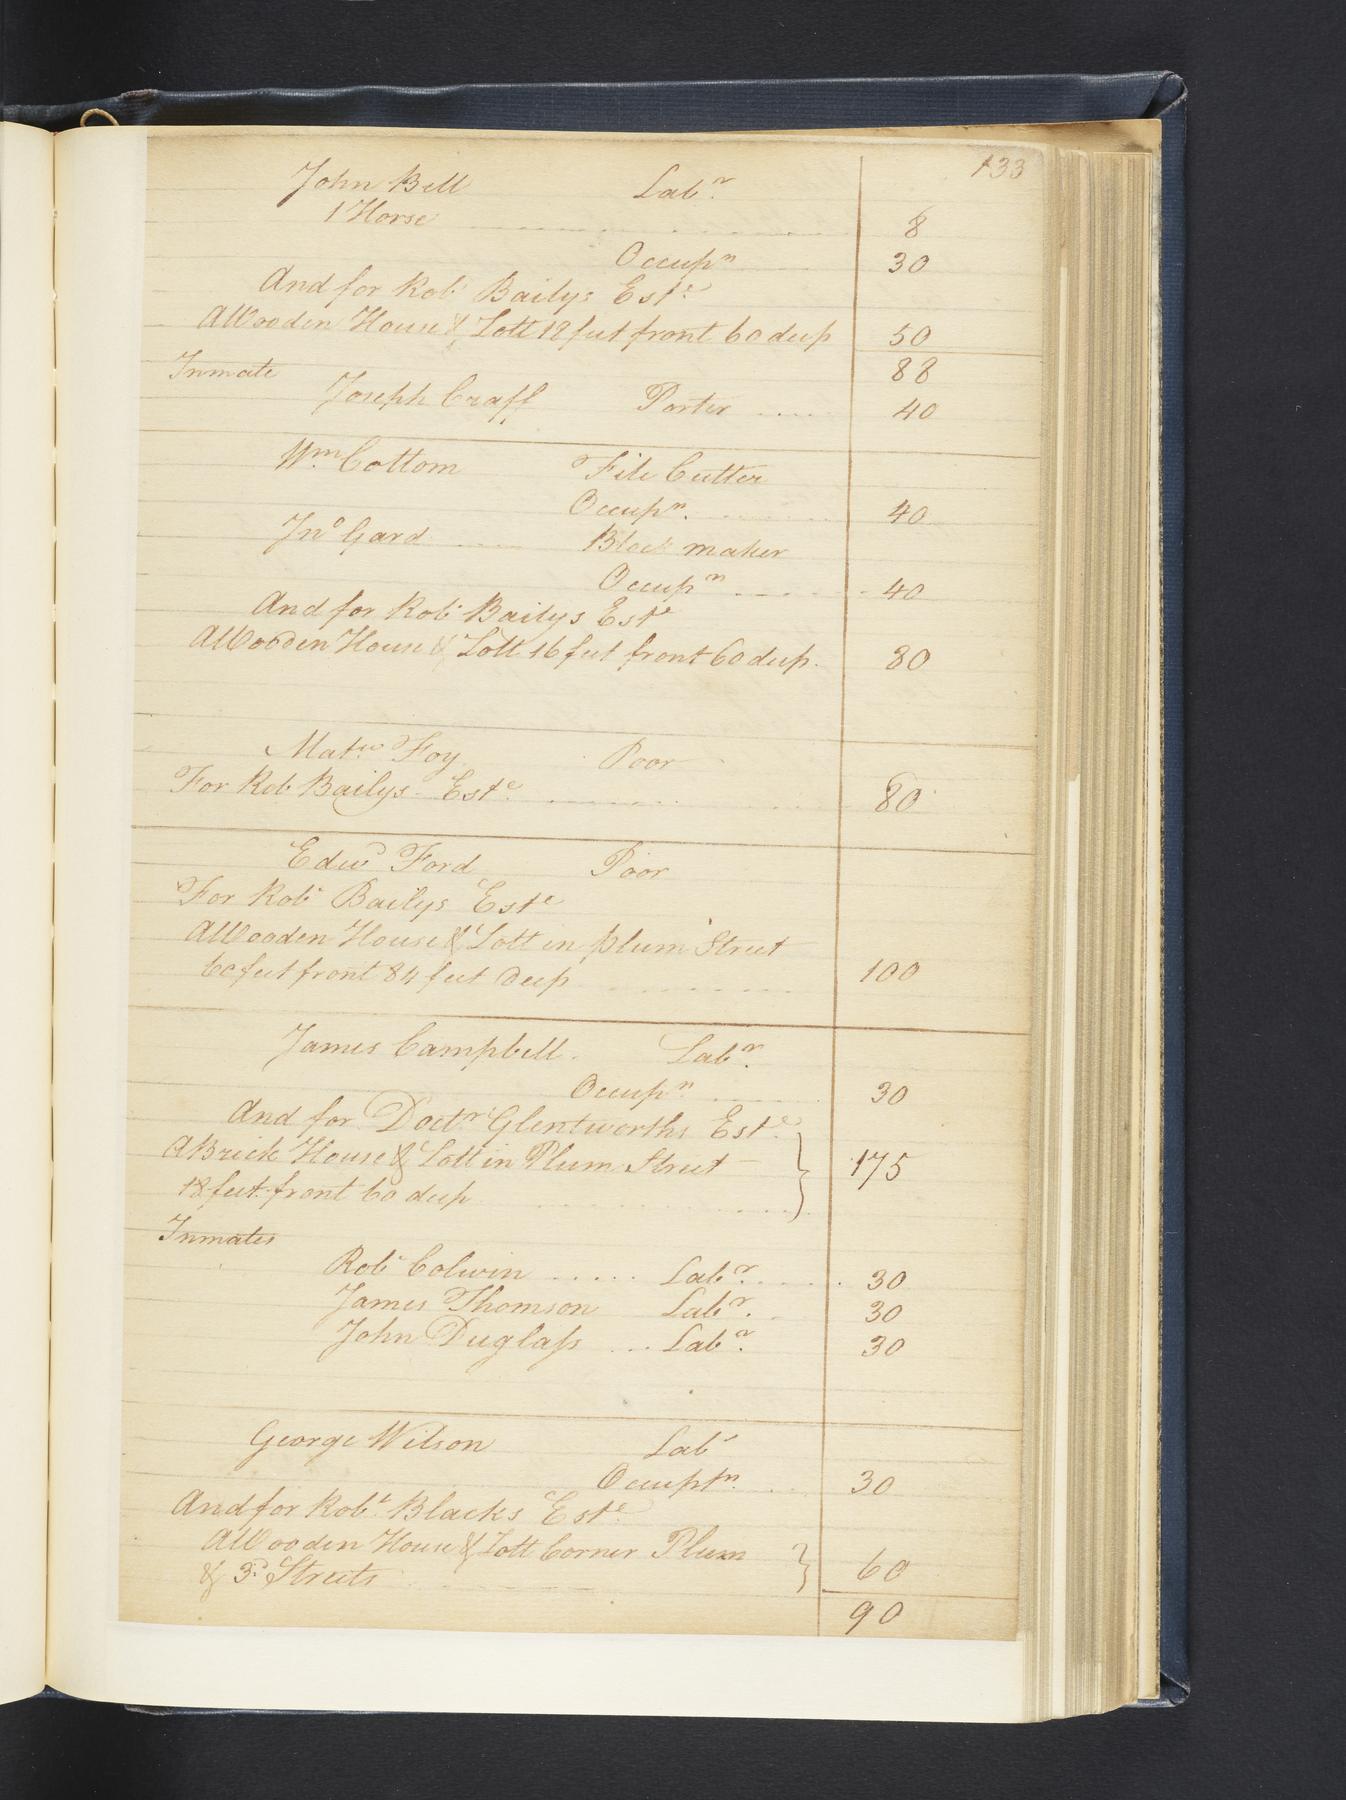 133
John Bell Labr.
1 Horse 8
Occupn 30
And for Robt Bailys Este.
A Wooden House & Lott 18 feet front 60 deep 50
88
Inmate
Joseph Craff Porter 40
Wm. Cottom File Cutter
Occupn. 40
Jno Gard Block maker
Occupn 40
And for Robt Bailys Este
A Wooden House & Lott 16 feet front 60 deep. 80
Matw Foy Poor
For Rob Bailys Este. 80
Edwd Ford Poor
For Robt Bailys Este
A Wooden House & Lott in plum Street
60 feet front 84 feet Deep 100
James Campbell. Labr.
Occupn. 30
And for Doctr Glentworths Este.
A Brick House & Lott in Plum Street 175
18 feet front 60 deep
Inmates
Robt Colwin Labr. 30
James Thomson Labr. 30
John Duglass Labr. 30
George Wilson Labr
Occuptn. 30
And for Robt Blacks Este.
A Wooden House & Lott Corner Plum
& 3d Streets 60
90